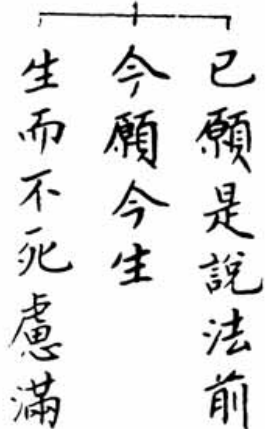 已願是說法前
今願今生
生而不死慮滿